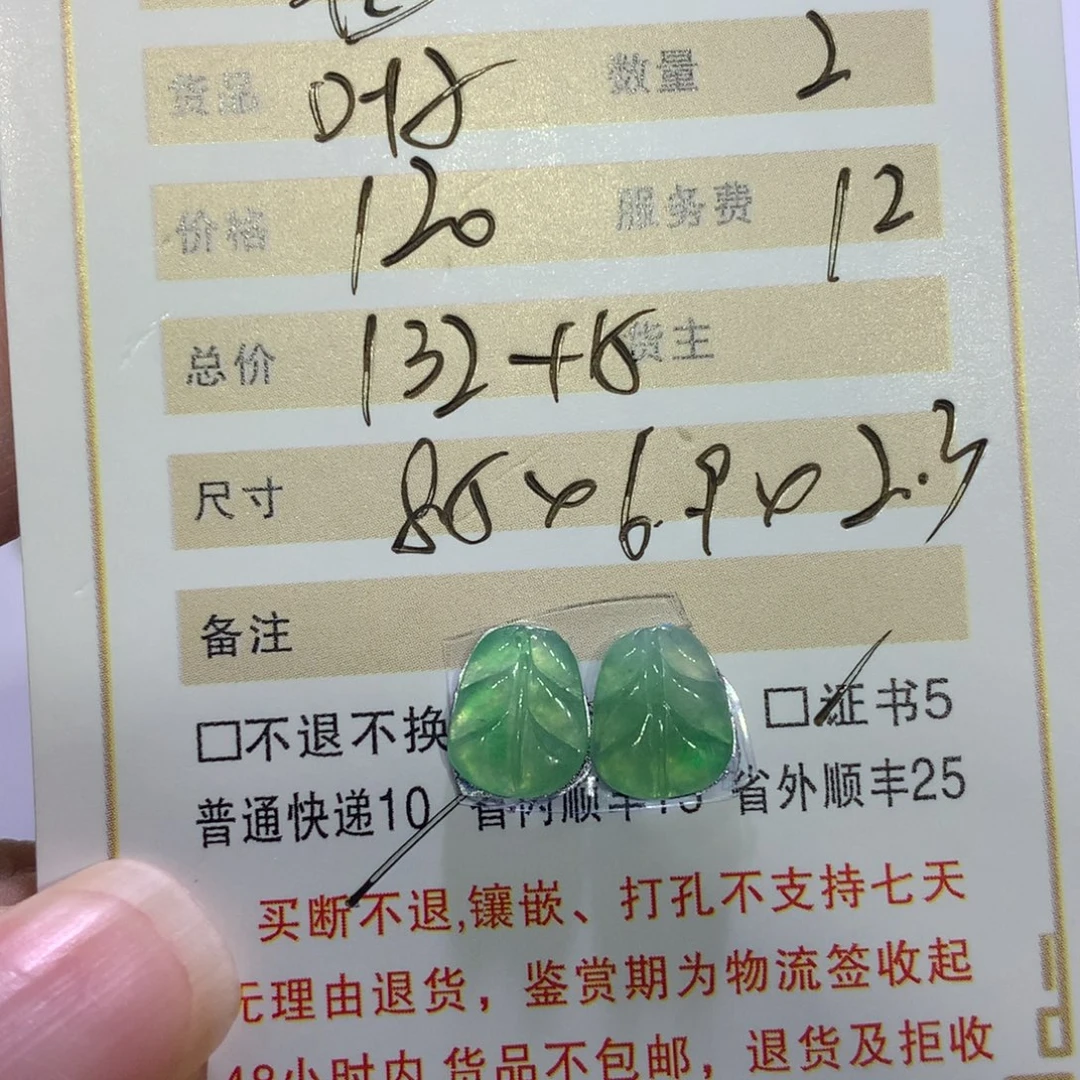 货品 叶子 数量 2
价格 120 服务费 12
总价 132+15 货主
尺寸 8.5×6.9×2.3
备注
□不退不换 □证书5
普通快递10 省内顺丰15 省外顺丰25
买断不退,镶嵌、打孔不支持七天
无理由退货，鉴赏期为物流签收起
48小时内,货品不包邮，退货及拒收